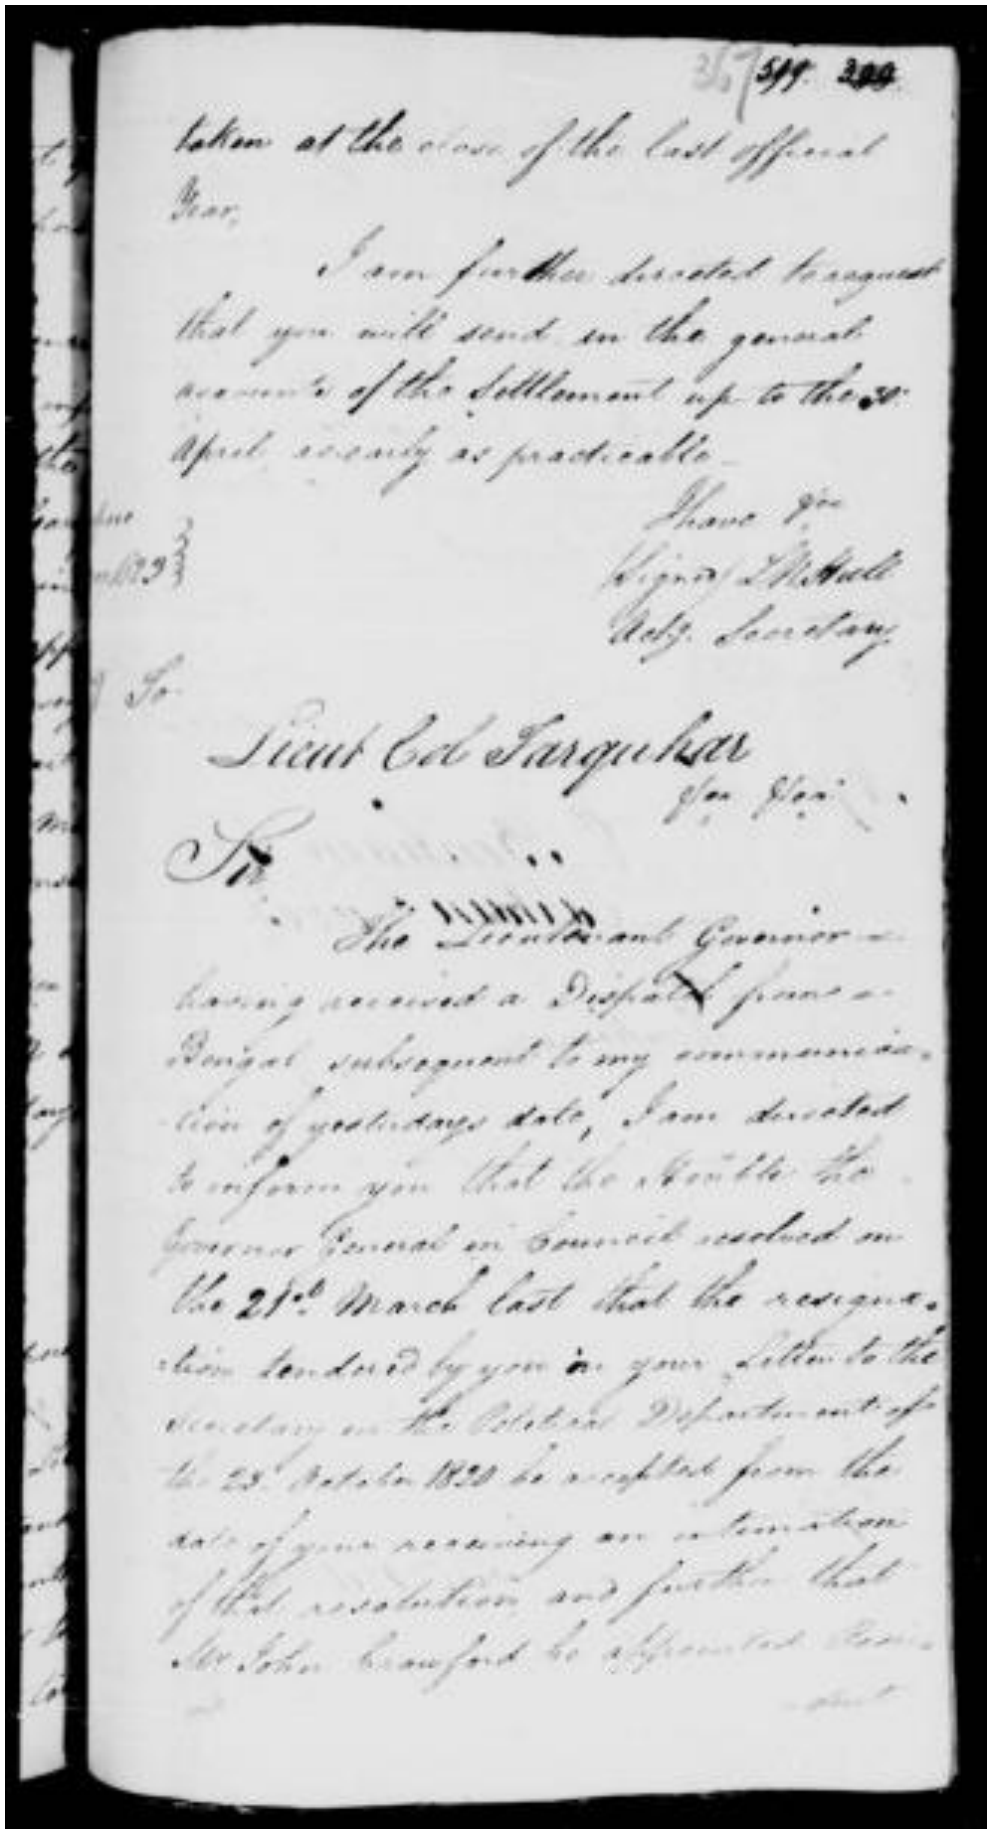 367 599. 300
taken at the close of the last official
Year,
I am further directed to request
that you will send in the general
accounts of the Settlement up to the 30
April as early as practicable
I have &ca
Signed/ L N Hull
Actg. Secretary
To
Lieut Col Farquhar
&ca &ca
Sir
The Lieutenant Governor
having received a Dispatch from
Bengal subsequent to my communica-
-tion of yesterdays date, I am directed
to inform you that the Honble the
Governor General in Council resolved on
the 21st March last that the resigna-
-tion tendered by you in your Letter to the
Secretary in the Political Department of
the 23 October 1820 be accepted from the
date of your receiving an intimation
of that resolution and further that
Mr John Crawford be appointed Resi-
-dent